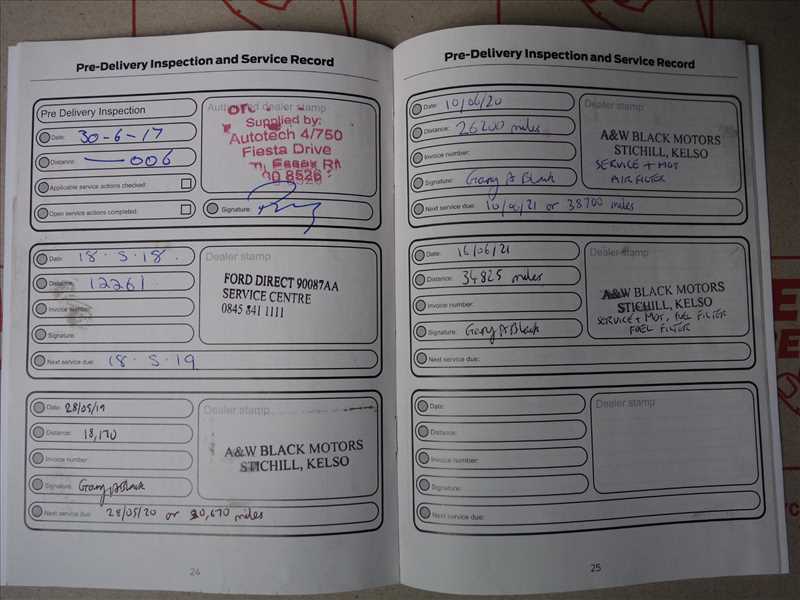 Pre-Delivery Inspection and Service Record
Pre Delivery Inspection
Date: 30-6-17
Distance: 006
Applicable service actions checked:
Open service actions completed:
Authorized dealer stamp
Supplied by:
Autotech 4/750
Fiesta Drive
Essex RM
00 8526
Signature:
Date: 18.5.18.
Distance: 12261
Invoice number:
Signature:
Next service due: 18.5.19
Dealer stamp
FORD DIRECT 90087AA
SERVICE CENTRE
0845 841 1111
Date: 28/05/19
Distance: 18,170
Invoice number:
Signature: Gary A Black
Next service due: 28/05/20 or 30,670 miles
Dealer stamp
A&W BLACK MOTORS
STICHILL, KELSO
24
Pre-Delivery Inspection and Service Record
Date: 10/06/20
Distance: 26200 miles
Invoice number:
Signature: Gary A Black
Next service due: 10/06/21 or 38700 miles
Dealer stamp
A&W BLACK MOTORS
STICHILL, KELSO
SERVICE + MOT
AIR FILTER
Date: 16/06/21
Distance: 34825 miles
Invoice number:
Signature: Gary A Black
Next service due:
Dealer stamp
A&W BLACK MOTORS
STICHILL, KELSO
SERVICE + MOT, FUEL FILTER
FUEL FILTER
Date:
Distance:
Invoice number:
Signature:
Next service due:
Dealer stamp
25